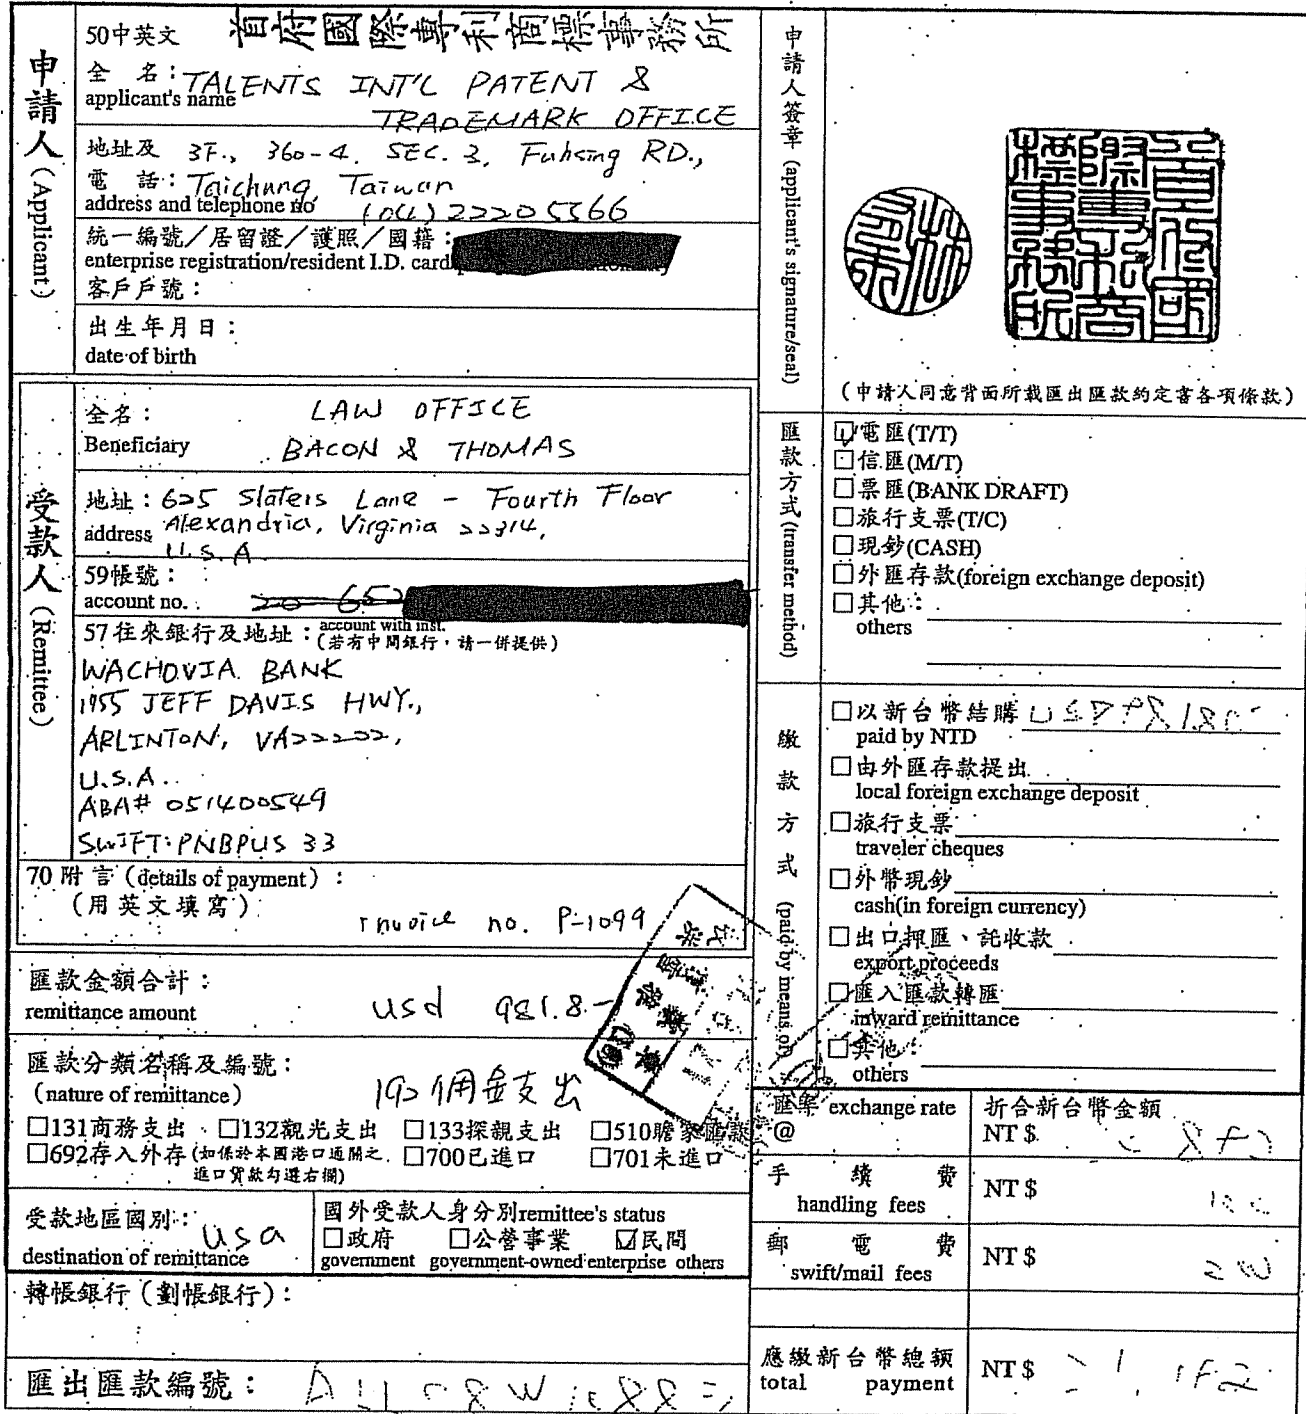 申請人(Applicant)
50中英文 首府國際專利商標事務所
全 名: TALENTS INT'L PATENT &
applicant's name TRADEMARK OFFICE
地址及 3F., 360-4, SEC. 3, Fuhsing RD.,
電 話: Taichung, Taiwan
address and telephone no (04) 22205566
統一編號/居留證/護照/國籍:
enterprise registration/resident I.D. card
客戶戶號:
出生年月日:
date of birth
受款人(Remittee)
全名: LAW OFFICE
Beneficiary BACON & THOMAS
地址: 625 Slaters Lane - Fourth Floor
address Alexandria, Virginia 22314,
U.S.A
59帳號:
account no.
57往來銀行及地址: account with inst.
(若有中間銀行,請一併提供)
WACHOVIA BANK
1755 JEFF DAVIS HWY.,
ARLINTON, VA22202,
U.S.A.
ABA# 051400549
SWIFT: PNBPUS 33
70附言(details of payment):
(用英文填寫) Invoice no. P-1099
匯款金額合計:
remittance amount usd 981.8-
匯款分類名稱及編號:
(nature of remittance) 192佣金支出
□131商務支出 □132觀光支出 □133探親支出 □510贍家匯款
□692存入外存(如係於本國港口通關之 □700已進口 □701未進口
進口貨款勾選右欄)
受款地區國別: usa
destination of remittance
國外受款人身分別remittee's status
□政府 □公營事業 ☑民間
government government-owned enterprise others
轉帳銀行(劃帳銀行):
匯出匯款編號:
申請人簽章(applicant's signature/seal)
首府國際專利商標事務所
(申請人同意背面所載匯出匯款約定書各項條款)
匯款方式(transfer method)
☑電匯(T/T)
□信匯(M/T)
□票匯(BANK DRAFT)
□旅行支票(T/C)
□現鈔(CASH)
□外匯存款(foreign exchange deposit)
□其他:
others
繳款方式(paid by means of)
□以新台幣結購
paid by NTD
□由外匯存款提出
local foreign exchange deposit
□旅行支票
traveler cheques
□外幣現鈔
cash(in foreign currency)
□出口押匯、託收款
export proceeds
□匯入匯款轉匯
inward remittance
□其他:
others
匯率 exchange rate 折合新台幣金額
@ NT $
手續費 NT $
handling fees
郵電費 NT $
swift/mail fees
應繳新台幣總額 NT $
total payment